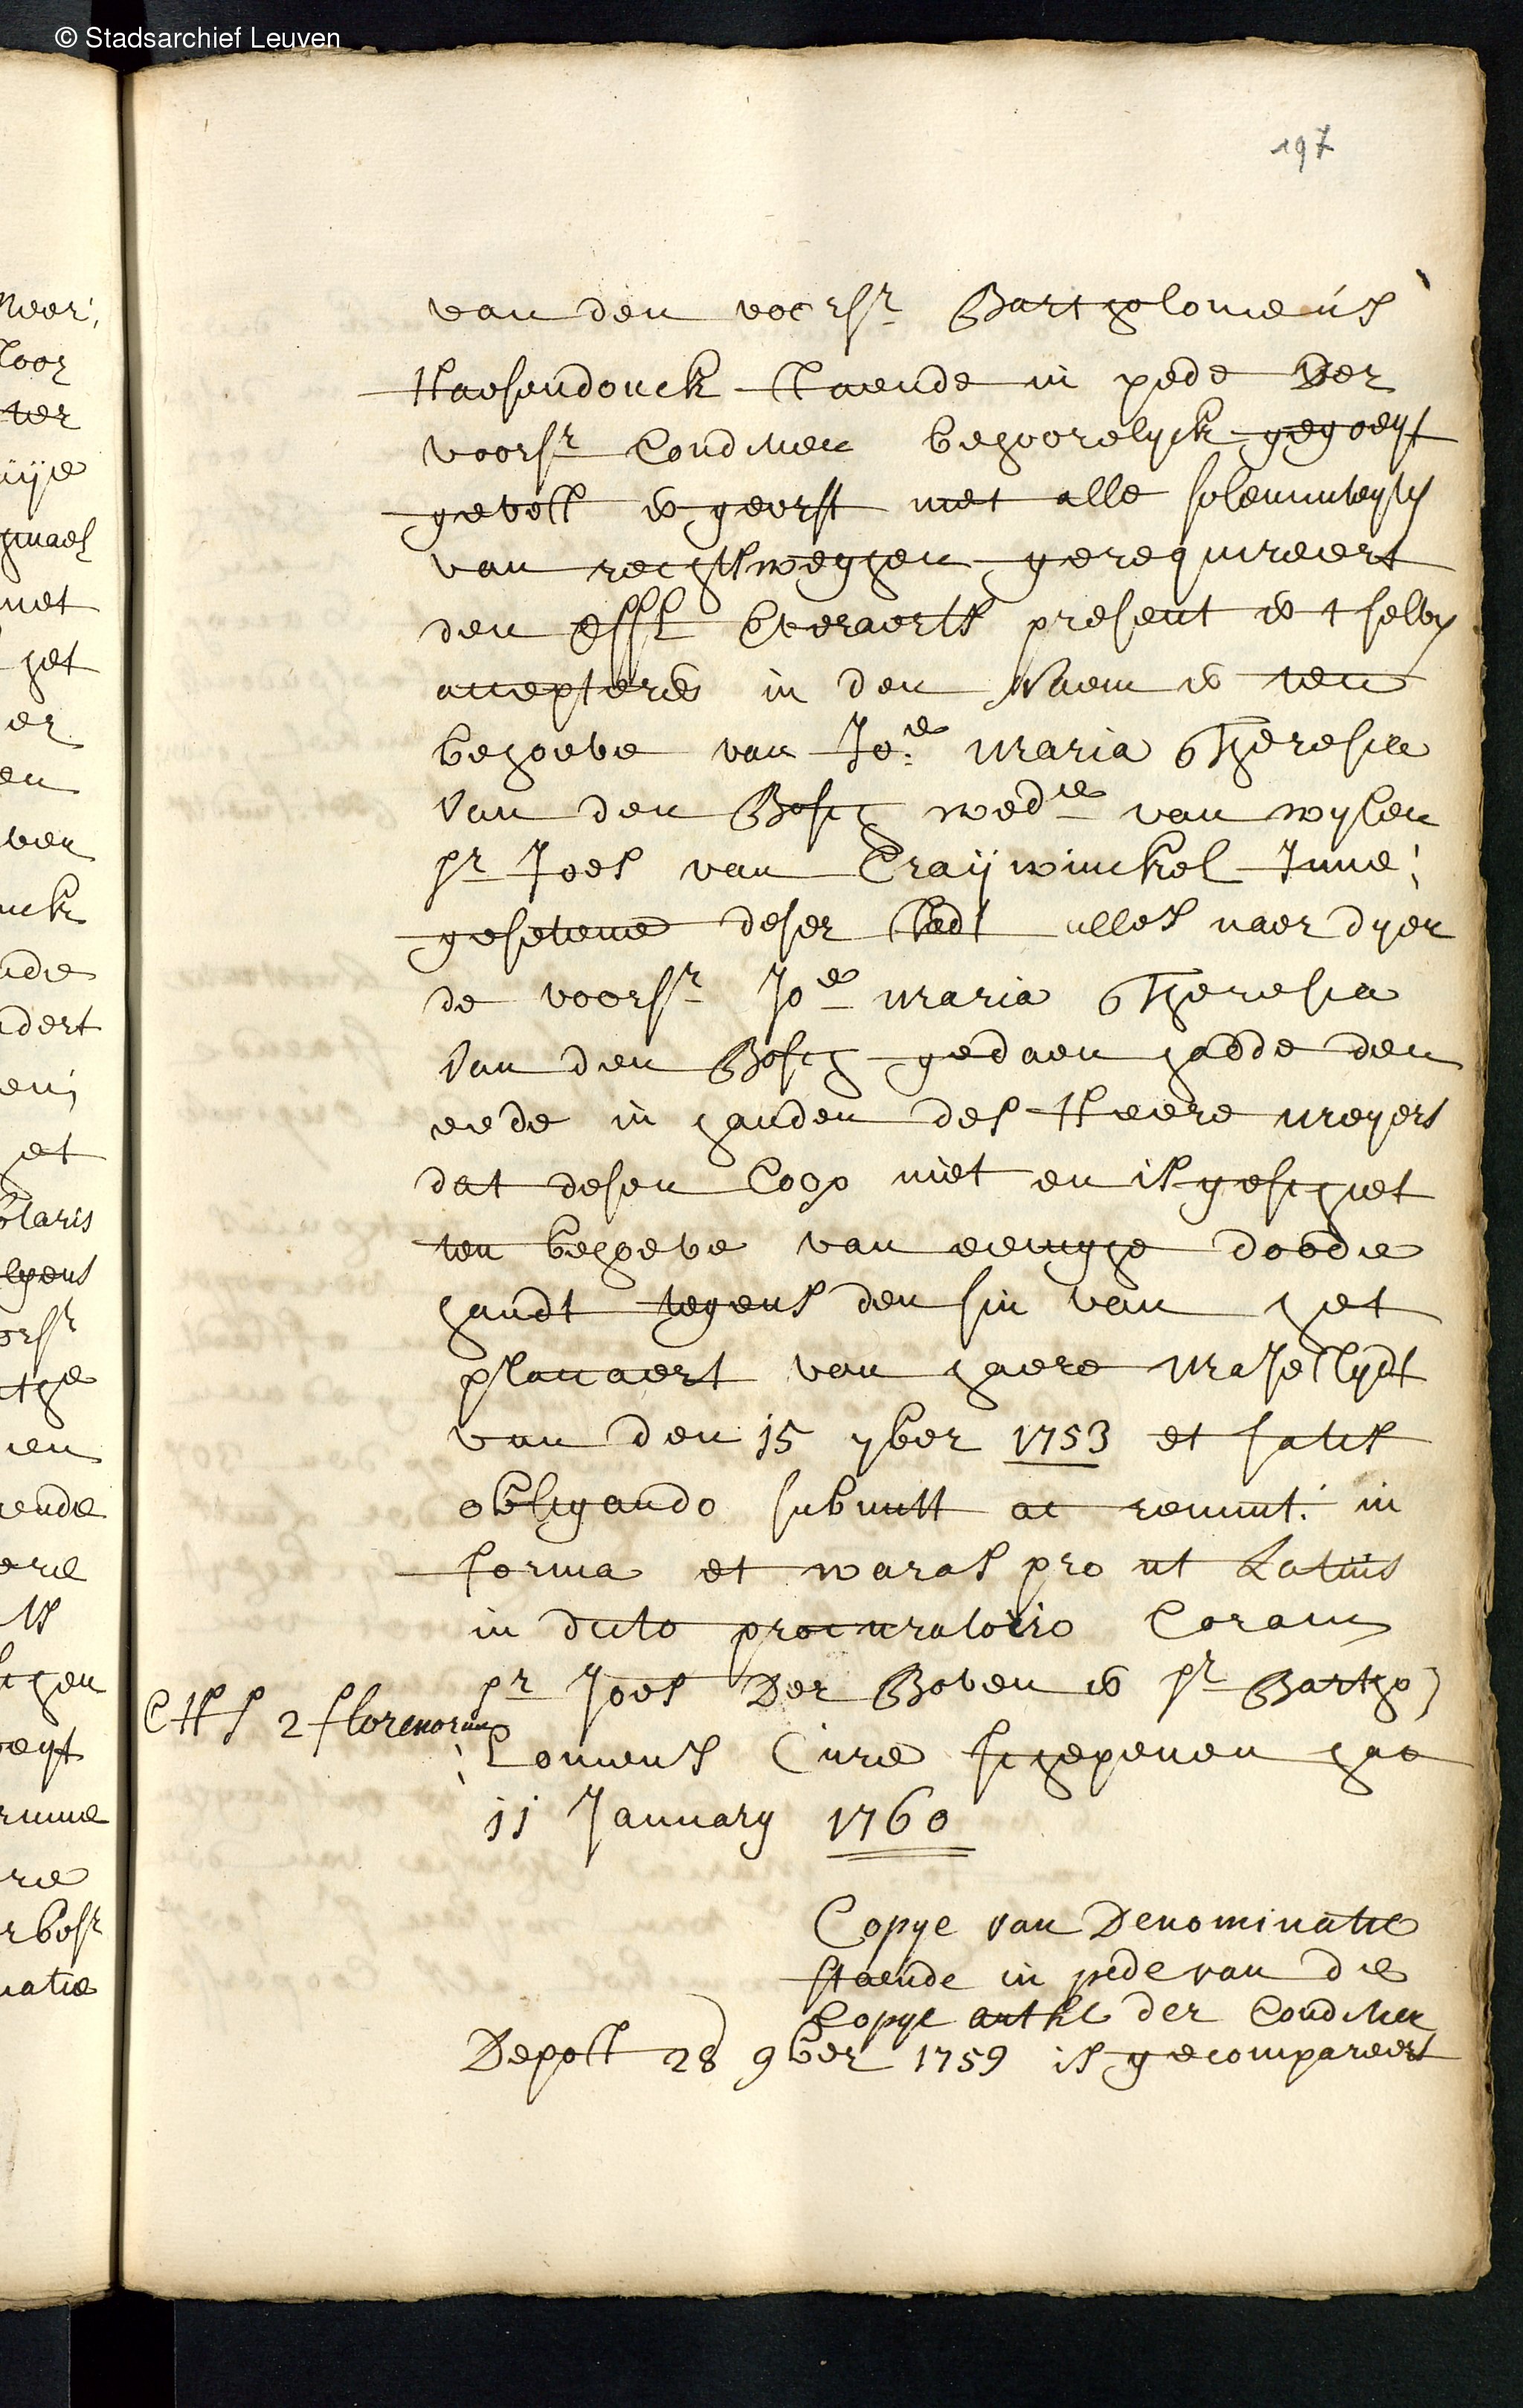 © Stadsarchief Leuven
197
van den voorsr Bartholomeus
Haesendonck staende in pede der
voorsr Conditien behoorelyck gegoeyt
gevest en geerft met alle solemniteyten
van rechtsweghen gerequireert
den Everaerts present en t selve
accepterende in den naem en ten
behoeve van Joe Maria Theresia
van den Bosch wede van wylen
sr Joes van Craywinckel Inne
gesetene deser stadt alles naer dyen
de voorsr Joe Maria Theresia
van den Bosch gedaen hadde den
eede in handen des Heere meyers
dat desen Coop niet en is geschiet
ten behoeve van eenighe doode
handt tegens den sin van het
placcaert van haere Majesteydt
van den 15 7ber 1753 et satis
obligando submitt ac renunt: in
forma et waras pro ut Latius
in dicto procuratorio Coram
sr Joes Der Boven en sr Bartho
Lomeus Cure schepenen hac
11 January 1760
2 florenorum
Copye van Denominatie
staende in pede van die
Copye der Conditien
28 9ber 1759 is gecompareert